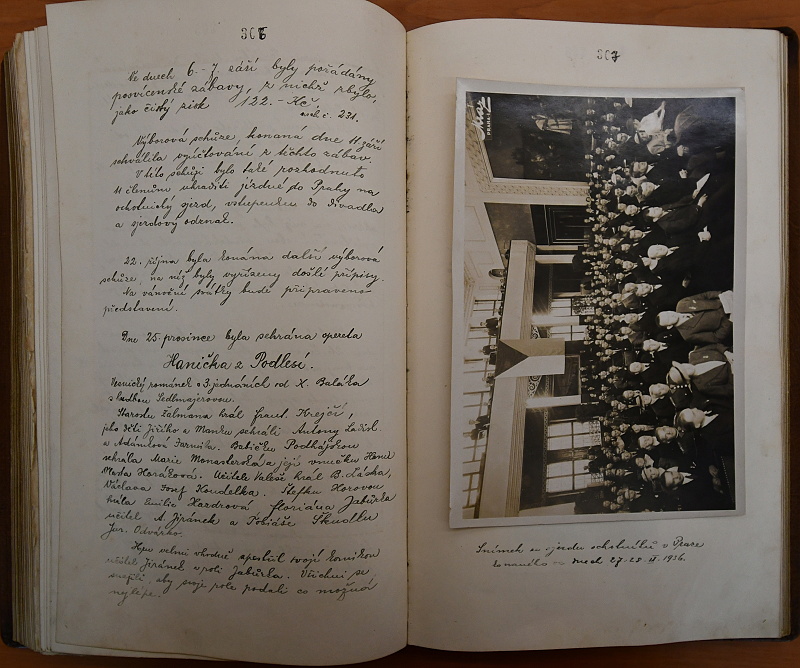 306
Ve dnech 6.-7. září byly pořádány
posvícenské zábavy, z nichž zbylo,
jako čistý zisk 122.- Kč
č. 231.
Výborová schůze, konaná dne 11. září
schválila vyúčtování z těchto zábav.
V této schůzi bylo také rozhodnuto
11 členům uhraditi jízdné do Prahy na
ochotnický sjezd, vstupenku do divadla
a sjezdový odznak.
22. října byla konána další výborová
schůze, na níž byly vyřízeny došlé přípisy.
Na vánoční svátky bude připraveno
představení.
Dne 25. prosince byla sehrána opereta
Hanička z Podlesí.
románek o 3 jednáních od X. Baláka
s hudbou Sedlmajerovou.
Starostu Zalmana hrál Frant. Krejčí,
jeho děti Jiřího a Manku sehráli Antony Ladisl.
a Adámková Jarmila. Babičku Podhájskou
sehrála Marie Monasterská a její vnučku
Horáková. Učitele Valeše hrál B. Láska,
Václava Josef Koudelka. Štefku Horovou
hrála Emilie Floriána Jabůrka
učitel A. Jiránek a Tobiáše Škudllu
Jar. Odvárko.
velmi vhodně zpestřil svojí komikou
učitel Jiránek v roli Jabůrka. Všichni se
snažili, aby svoje role podali co možná
nejlépe.
307
Snímek ze sjezdu ochotníků v Praze
konaného 27-28 1936.